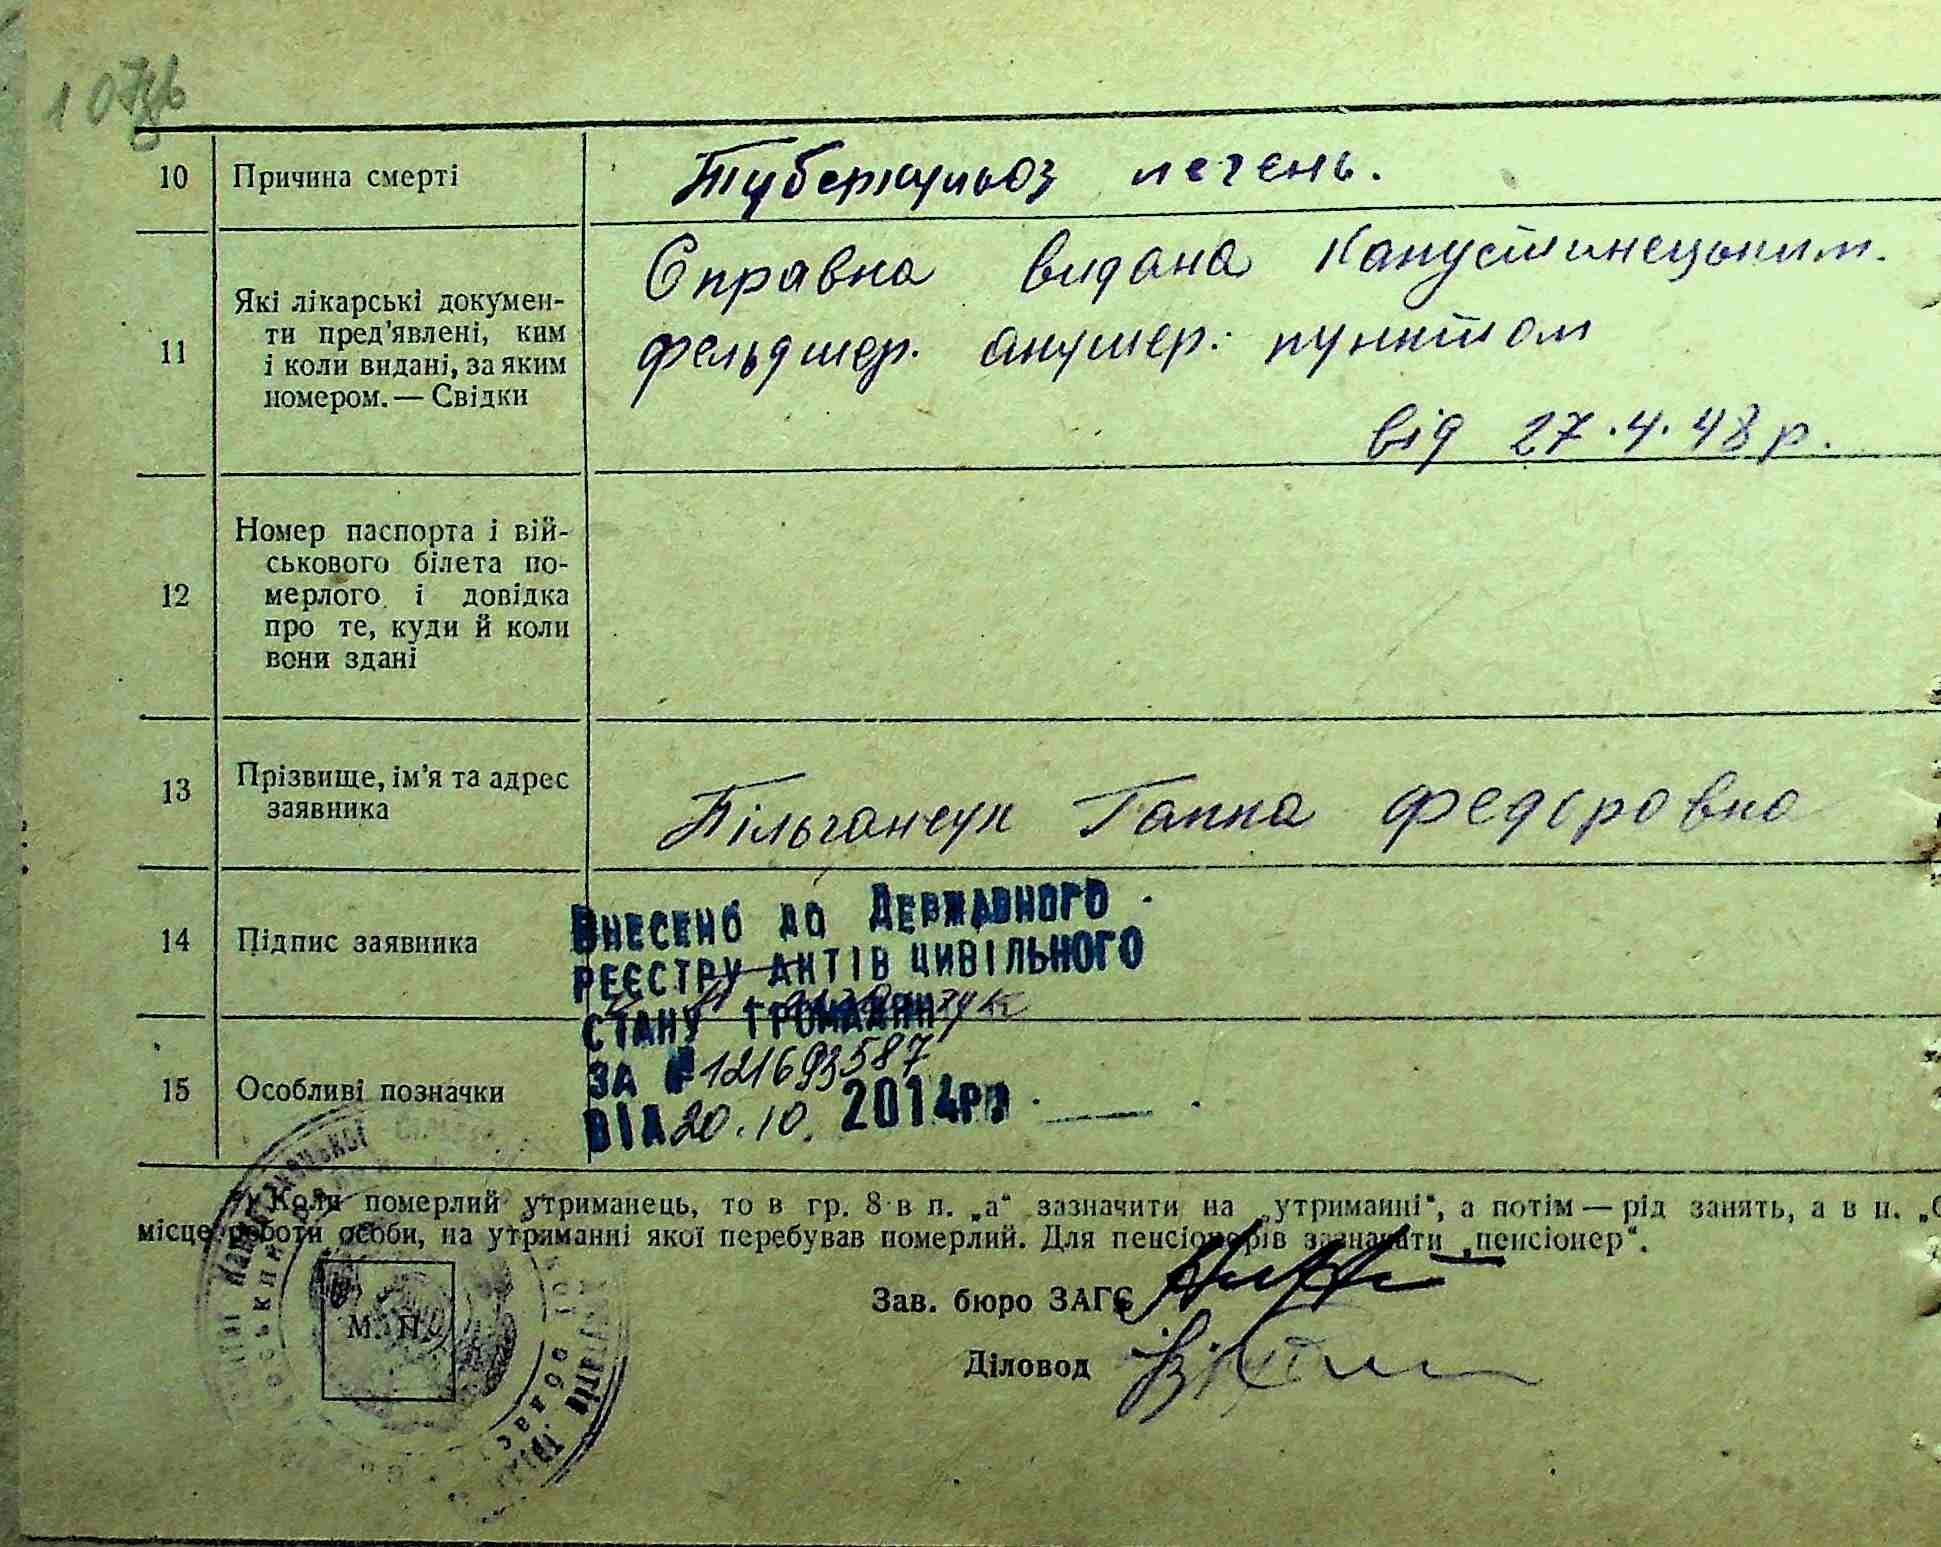 10
Причина смерті
Туберкульоз легень.
11
Які лікарські докумен-
ти пред'явлені, ким
і коли видані, за яким
номером. — Свідки
Справка видана Капустинецьким.
фельдшер. акушер. пунктом
від 27.4.48 р.
12
Номер паспорта і вій-
ськового білета по-
мерлого і довідка
про те, куди й коли
вони здані
13
Прізвище, ім'я та адрес
заявника
Ганна Федоровна
14
Підпис заявника
ВНЕСЕНО ДО ДЕРЖАВНОГО
РЕЄСТРУ АКТІВ ЦИВІЛЬНОГО
СТАНУ ГРОМАДЯН
ЗА № 121693587
ВІД 20.10. 2014 р.
15
Особливі позначки
*) Коли померлий утриманець, то в гр. 8 в п. „а“ зазначити на „утриманні“, а потім — рід занять, а в п.
місце роботи особи, на утриманні якої перебував померлий. Для пенсіонерів зазначати „пенсіонер“.
Зав. бюро ЗАГС
М. П.
Діловод